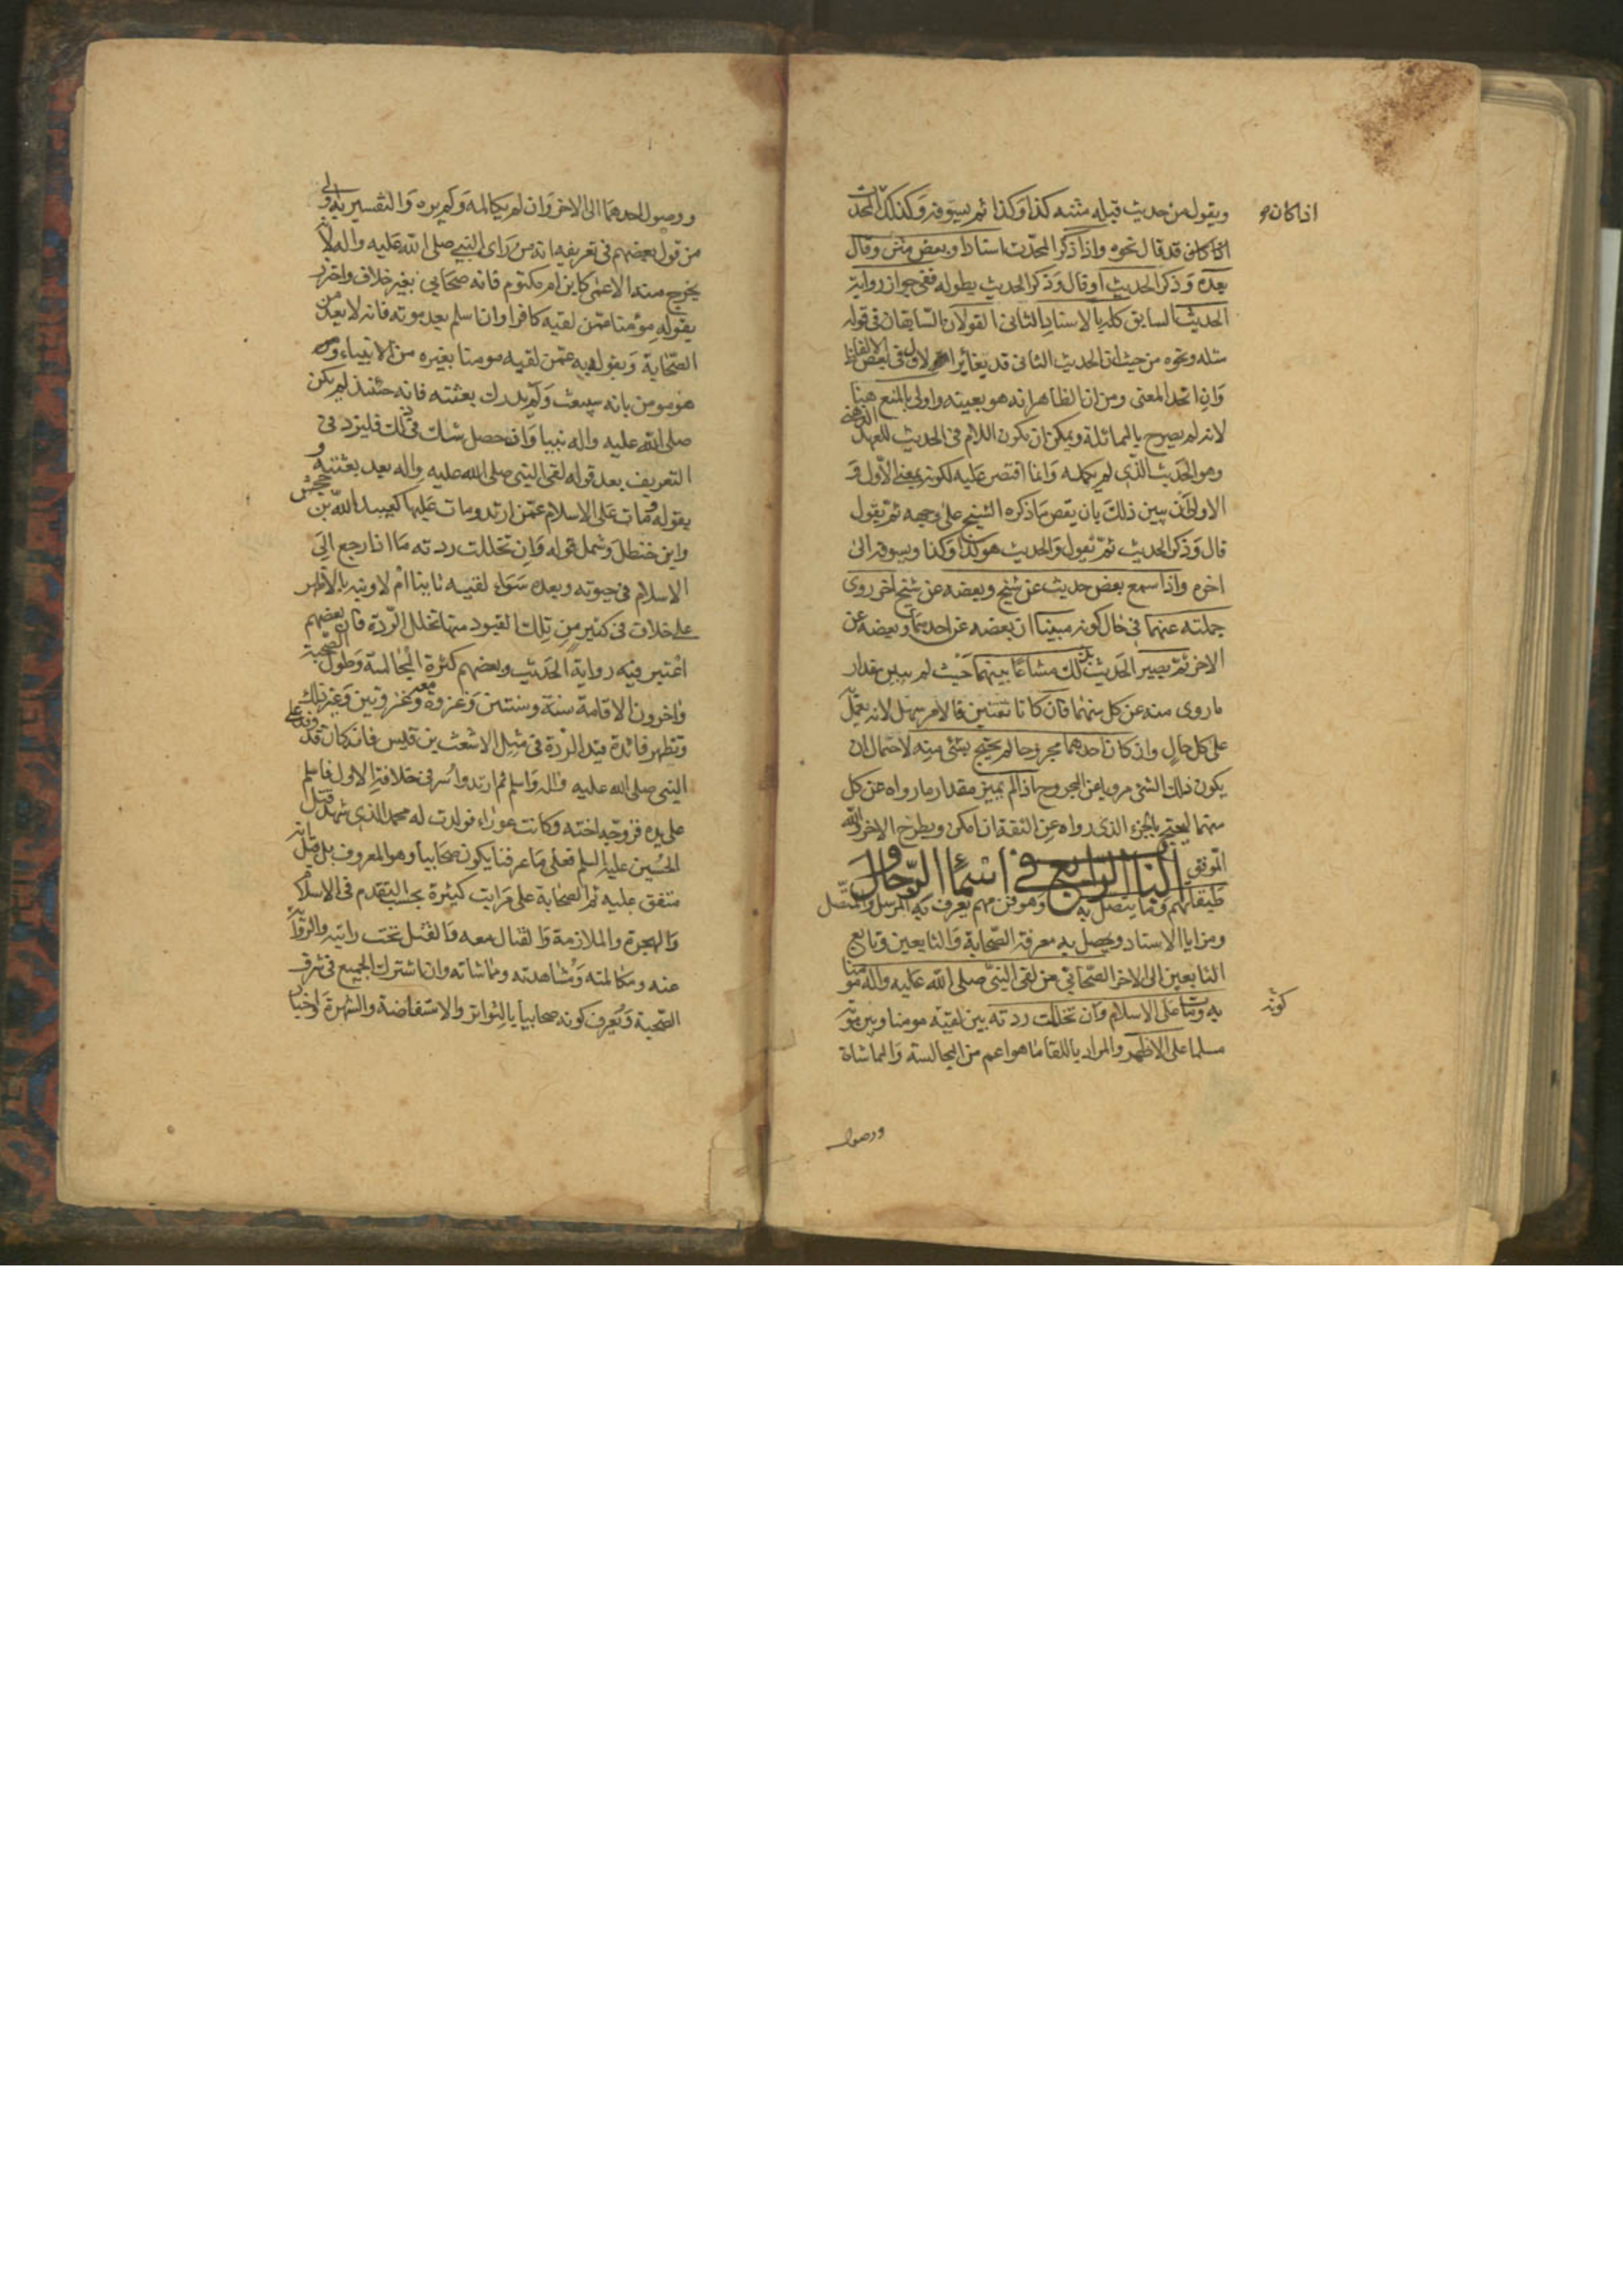 ويقول من حديث قبله متنه كذا وكذا ثم يسوقه وكذلك المحدث
اذا كان
اذا كان قد قال نحوه واذا ذكر المحدث اسنادا وبعض متن وقال
بعده وذكر الحديث او قال وذكر الحديث بطوله ففي جواز رواية
الحديث السابق كله بالاسناد الثاني القولان السابقان في قوله
مثله ونحوه من حيث ان الحديث الثاني قد يغاير الاول في بعض الالفاظ
وان اتحد المعنى ومن ان الظاهر انه هو بعينه واولى بالمنع هنا
لانه لم يصرح بالمماثلة ويمكن ان يكون اللام في الحديث للعهد الذهني
وهو الحديث الذي لم يكمله وانما اقتصر عليه لكونه بمعنى الاول و
الاولى ان يبين ذلك بان يقص ما ذكره الشيخ على وجهه ثم يقول
قال وذكر الحديث ثم يقول والحديث هو كذا وكذا ويسوقه الى
اخره واذا سمع بعض حديث عن شيخ وبعضه عن شيخ اخر روى
جملته عنهما في حال كونه مبينا ان بعضه عن احدهما وبعضه عن
الاخر ثم يصير الحديث بذلك مشاعا بينهما حيث لم يبين مقدار
ما روى منه عن كل منهما فان كانا ثقتين فالامر سهل لانه يعمل
على كل حال وان كان احدهما مجروحا لم يحتج بشئ منه لاحتمال ان
يكون ذلك الشئ مرويا عن المجروح اذا لم يميز مقدار ما رواه عن كل
منهما ليحتج بالجزء الذي رواه عن الثقة ان امكن ويطرح الاخر والله
الموفق الباب الرابع في اسماء الرجال و
طبقاتهم وما يتصل به وهو فن مهم يعرف به المرسل والمتصل
ومزايا الاسناد ويحصل به معرفة الصحابة والتابعين وتابع
التابعين الى الاخر الصحابي من لقى النبي صلى الله عليه واله مؤمنا
به ومات على الاسلام وان تخللت ردته بين لقيه مومنا وبين موته
كونه
مسلما على الاظهر والمراد باللقا ما هو اعم من المجالسة والمماشاة
ووصول
ووصول احدهما الى الاخر وان لم يكالمه ولم يره والتفسير به اولى
من قول بعضهم في تعريفه انه من راى النبي صلى الله عليه واله لانه
يخرج منه الاعمى كابن ام مكتوم فانه صحابي بغير خلاف واحترز
بقوله مؤمنا عمن لقيه كافرا وان اسلم بعد موته فانه لا يعد من
الصحابة وبقوله به عمن لقيه مومنا بغيره من الانبياء ومن
هو مومن بانه سيبعث ولم يدرك بعثته فانه حئنذ لم يكن
صلى الله عليه واله نبيا وان حصل شك في ذلك فليزد في
التعريف بعد قوله لقى النبي صلى الله عليه واله بعد بعثته و
بقوله ومات على الاسلام عمن ارتد ومات عليها كعبيد الله بن جحش
وابن خنطل وشمل قوله وان تخللت ردته ما اذا رجع الى
الاسلام في حيوته وبعده سواء لقيه ثانيا ام لا ونبه بالاظهر
على خلاف في كثير من تلك القيود منها تخلل الردة فان بعضهم
اعتبر فيه رواية الحديث وبعضهم كثرة المجالسة وطول الصحبة
واخرون الاقامة سنة وسنتين وغزوة معه وغزوتين وغير ذلك
وتظهر فائدة قيد الردة في مثل الاشعث بن قيس فانه كان قد وفد على
النبي صلى الله عليه واله واسلم ثم ارتد واسر في خلافة الاول فاسلم
على يده فزوجه اخته وكانت عوراء فولدت له محمد الذي شهد قتل
الحسين عليه السلم فعلى ما عرفنا يكون صحابيا وهو المعروف بل قيل انه
متفق عليه ثم الصحابة على مراتب كثيرة بحسب التقدم في الاسلام
والهجرة والملازمة والقتال معه والقتل تحت رايته والرواية
عنه ومكالمته ومشاهدته ومماشاته وان اشترك الجميع في شرف
الصحبة ويعرف كونه صحابيا بالتواتر والاستفاضة والشهرة واخبار